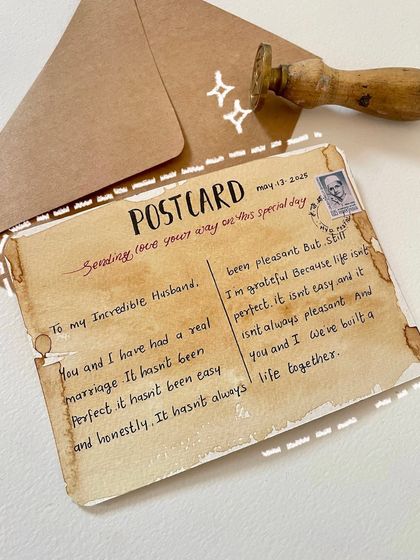 POSTCARD
may.13.2025
Sending love your way on this special day
To my Incredible Husband,
You and I have had a real
marriage It hasn't been
Perfect, it hasn't been easy
and honestly, It hasn't always
been pleasant But still
I'm grateful Because life isn't
perfect, it isnt easy, and it
isnt always pleasant And
you and I we've built a
life together.